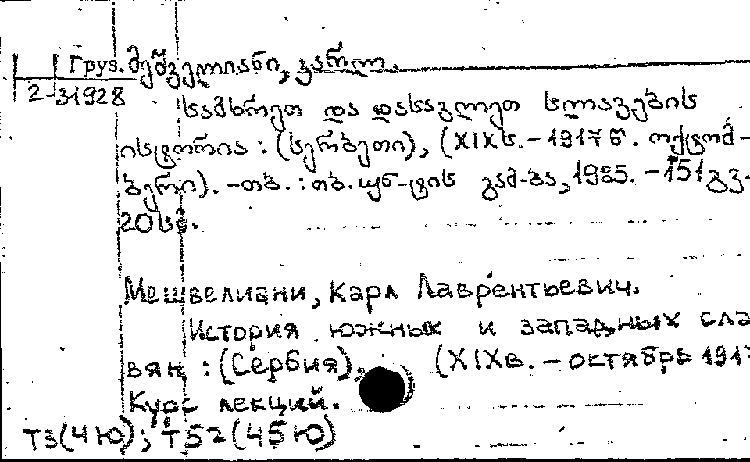 Груз. მეშველიანი, კარლ.
2-31928
სამხრეთ და დასავლეთ სლავების
ისტორია : (სერბეთი), (XIX ს. - 1917 წ. ოქტომ-
ბერი). - თბ. : თბ. უნ-ტის გამ-ბა, 1985. - 151 გვ.
20 სმ.
Мешвелиани, Карл Лаврентьевич.
История южных и западных сла
вян : (Сербия), (XIXв. - октябрь 1917
Курс лекций.
Т3(4Ю); Т52(45Ю)